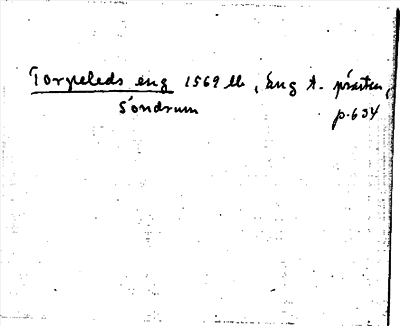 Torpeleds eng 1569 ll, äng t. prästen,
Söndrum p. 634